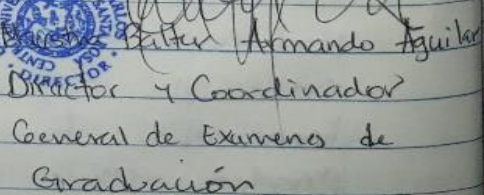 Maestro Balter Armando Aguilar
Director y Coordinador
General de Examenes de
Graduación
DIRECTOR